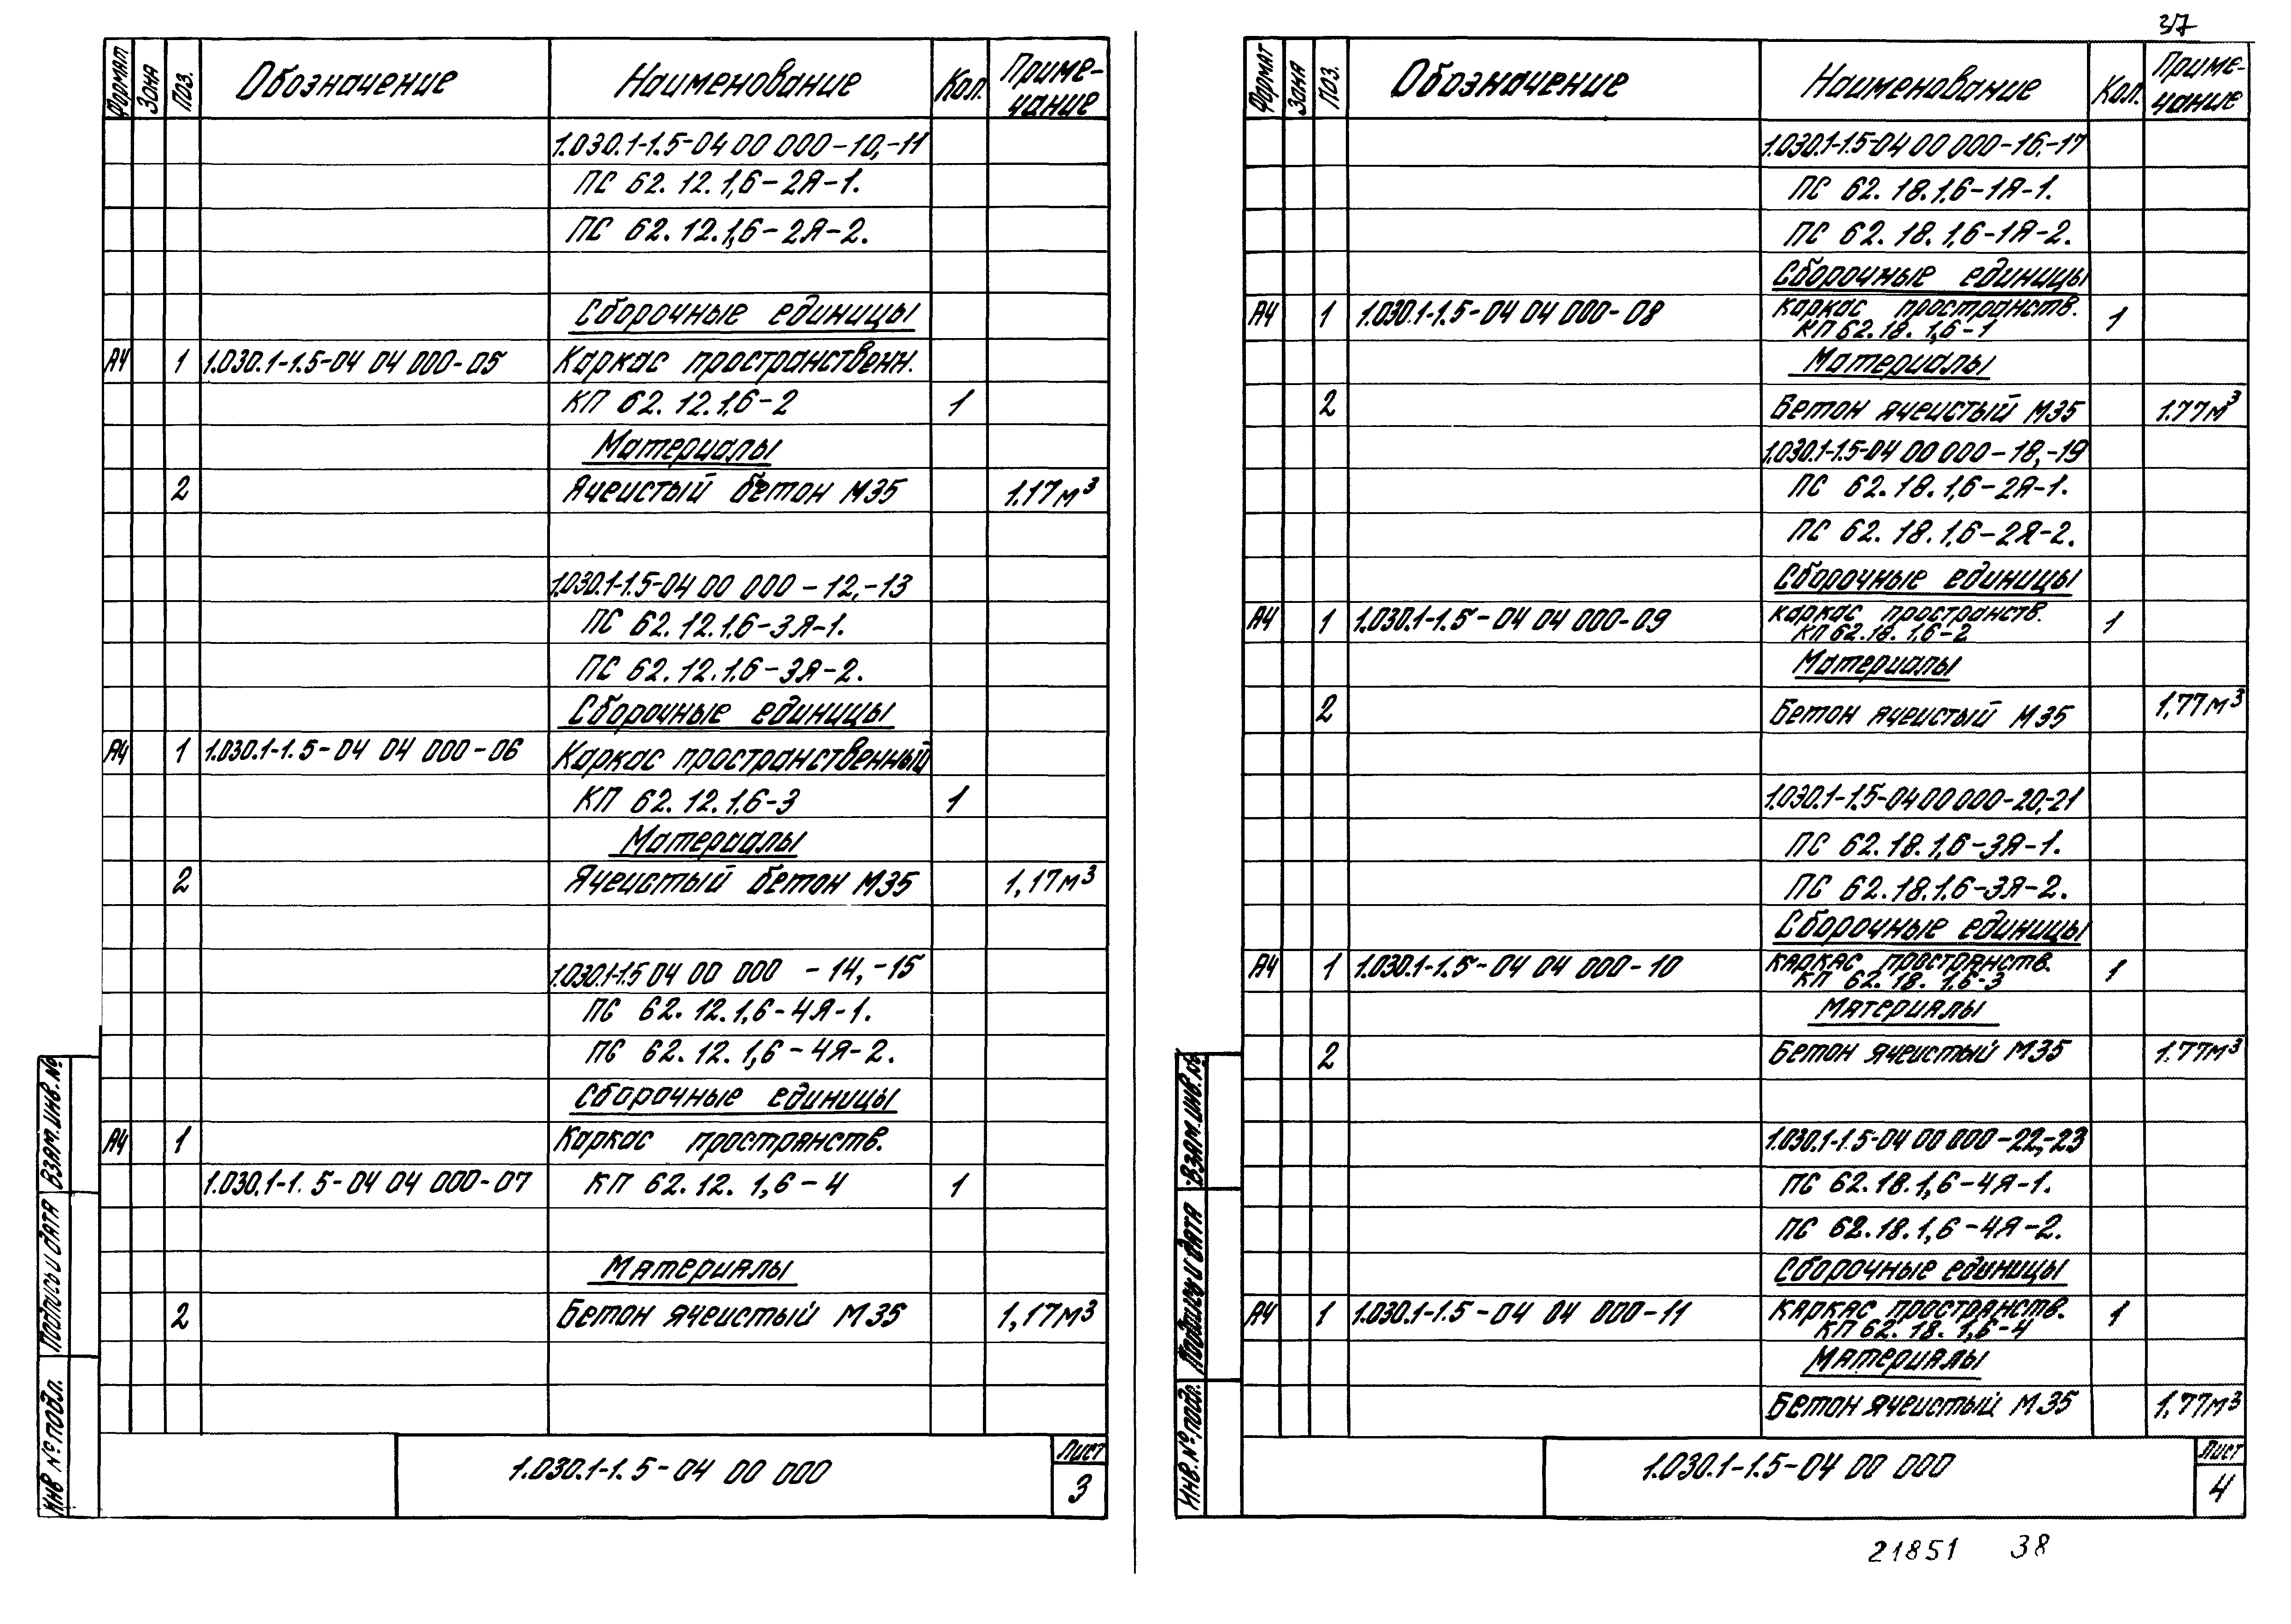 37
Формат Зона Поз. Обозначение Наименование Кол. Приме-
чание
1.030.1-1.5-04 00 000-10,-11
ПС 62.12.1,6-2Я-1.
ПС 62.12.1,6-2Я-2.
Сборочные единицы
А4 1 1.030.1-1.5-04 04 000-05 Каркас пространственн.
КП 62.12.1,6-2 1
Материалы
2 Ячеистый бетон М35 1.17м³
1.030.1-1.5-04 00 000-12,-13
ПС 62.12.1,6-3Я-1.
ПС 62.12.1,6-3Я-2.
Сборочные единицы
А4 1 1.030.1-1.5-04 04 000-06 Каркас пространственный
КП 62.12.1,6-3 1
Материалы
2 Ячеистый бетон М35 1,17м³
1.030.1-1.5 04 00 000 -14,-15
ПС 62.12.1,6-4Я-1.
ПС 62.12.1,6-4Я-2.
Сборочные единицы
А4 1 Каркас пространств.
1.030.1-1.5-04 04 000-07 КП 62.12.1,6-4 1
Материалы
2 Бетон ячеистый М35 1,17м³
Инв № подл. Подпись и дата Взам.инв.№
1.030.1-1.5-04 00 000
Лист
3
Формат Зона Поз. Обозначение Наименование Кол. Приме-
чание
1.030.1-1.5-04 00 000-16.-17
ПС 62.18.1,6-1Я-1.
ПС 62.18.1,6-1Я-2.
Сборочные единицы
А4 1 1.030.1-1.5-04 04 000-08 Каркас пространств. 1
КП 62.18.1,6-1
Материалы
2 Бетон ячеистый М35 1.77м³
1.030.1-1.5-04 00 000-18,-19
ПС 62.18.1,6-2Я-1.
ПС 62.18.1,6-2Я-2.
Сборочные единицы
А4 1 1.030.1-1.5-04 04 000-09 Каркас пространств. 1
КП 62.18.1,6-2
Материалы
2 Бетон ячеистый М35 1,77м³
1.030.1-1.5-04 00 000-20,-21
ПС 62.18.1,6-3Я-1.
ПС 62.18.1,6-3Я-2.
Сборочные единицы
А4 1 1.030.1-1.5-04 04 000-10 Каркас пространств. 1
КП 62.18.1,6-3
Материалы
2 Бетон ячеистый М35 1.77м³
1.030.1-1.5-04 00 000-22,-23
ПС 62.18.1,6-4Я-1.
ПС 62.18.1,6-4Я-2.
Сборочные единицы
А4 1 1.030.1-1.5-04 04 000-11 Каркас пространств. 1
КП 62.18.1,6-4
Материалы
Бетон ячеистый М35 1,77м³
Инв.№ подл. Подпись и дата Взам.инв.№
1.030.1-1.5-04 00 000
Лист
4
21851 38